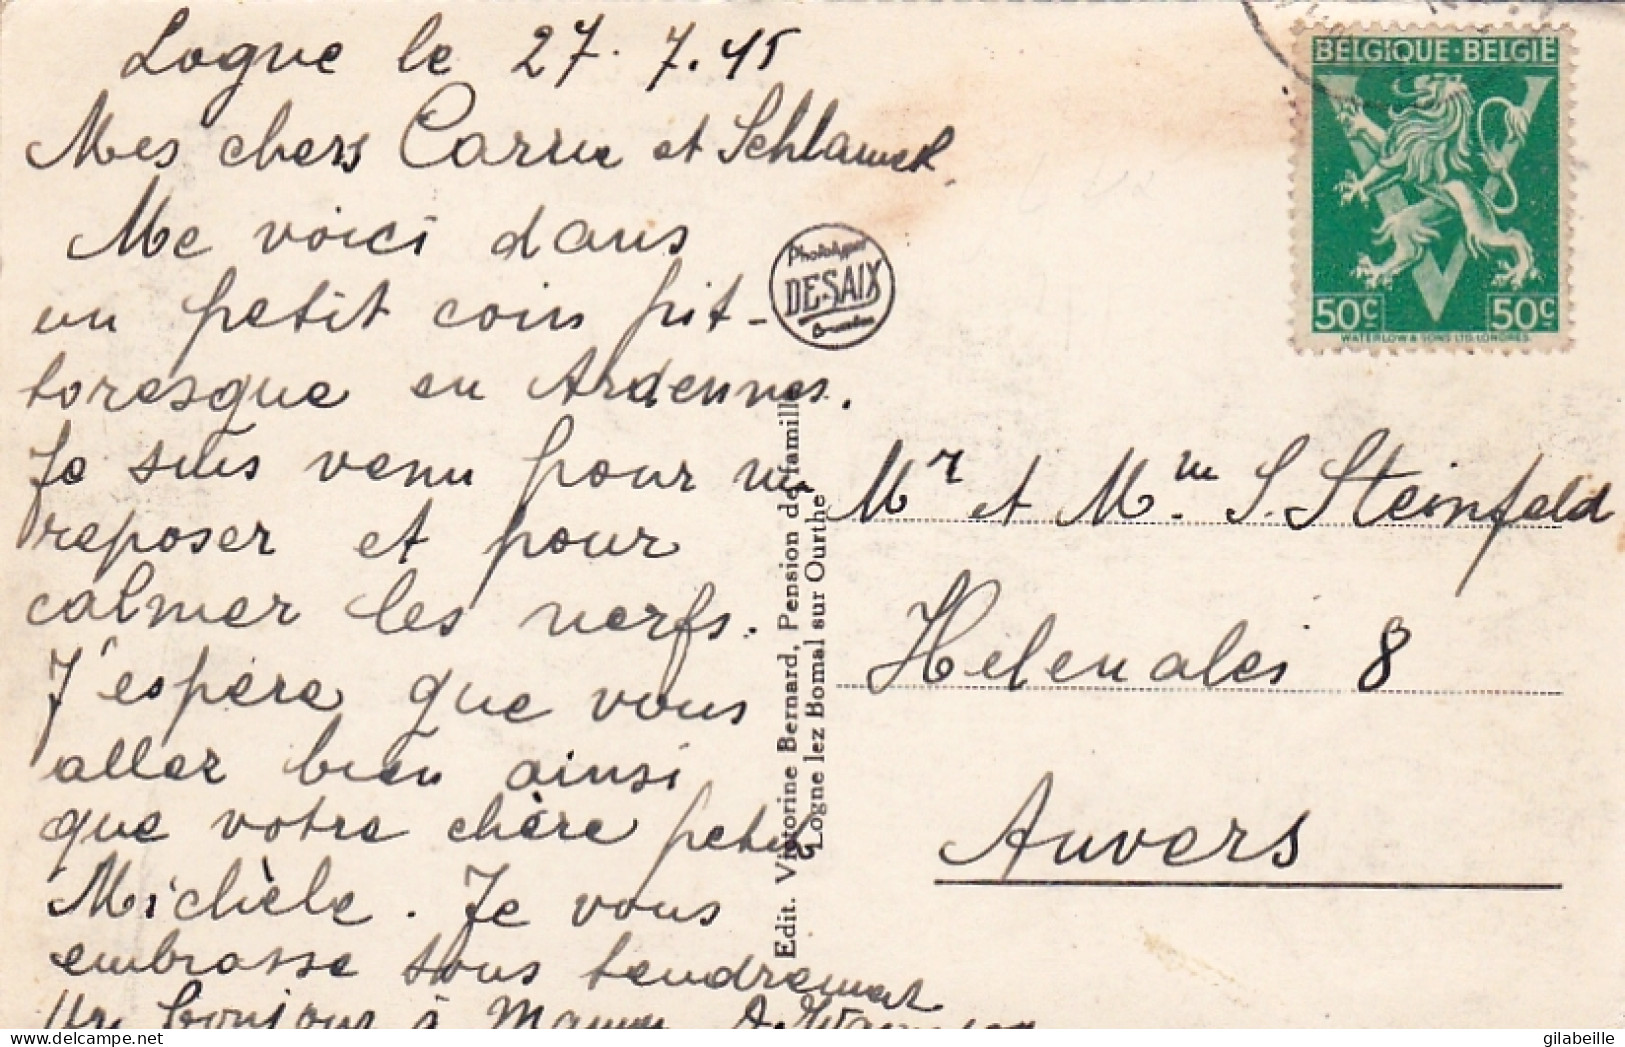 Logne le 27.7.45
Mes chers Carru et
Me voici dans
un petit coin pit-
toresque en Ardennes.
Je suis venu pour m
reposer et pour
calmer les nerfs.
J'espère que vous
aller bien ainsi
que votre chère petite
Michèle. Je vous
embrasse tous tendrement
Un bonjour à
Phototypie
DESAIX
Bruxelles
Edit. Victorine Bernard, Pension de famille
Logne lez Bomal sur Ourthe
BELGIQUE·BELGIË
50c 50c
WATERLOW & SONS LTD. LONDRES.
Mr et Mm S. Steinfeld
Helenalei 8
Anvers
gilabeille